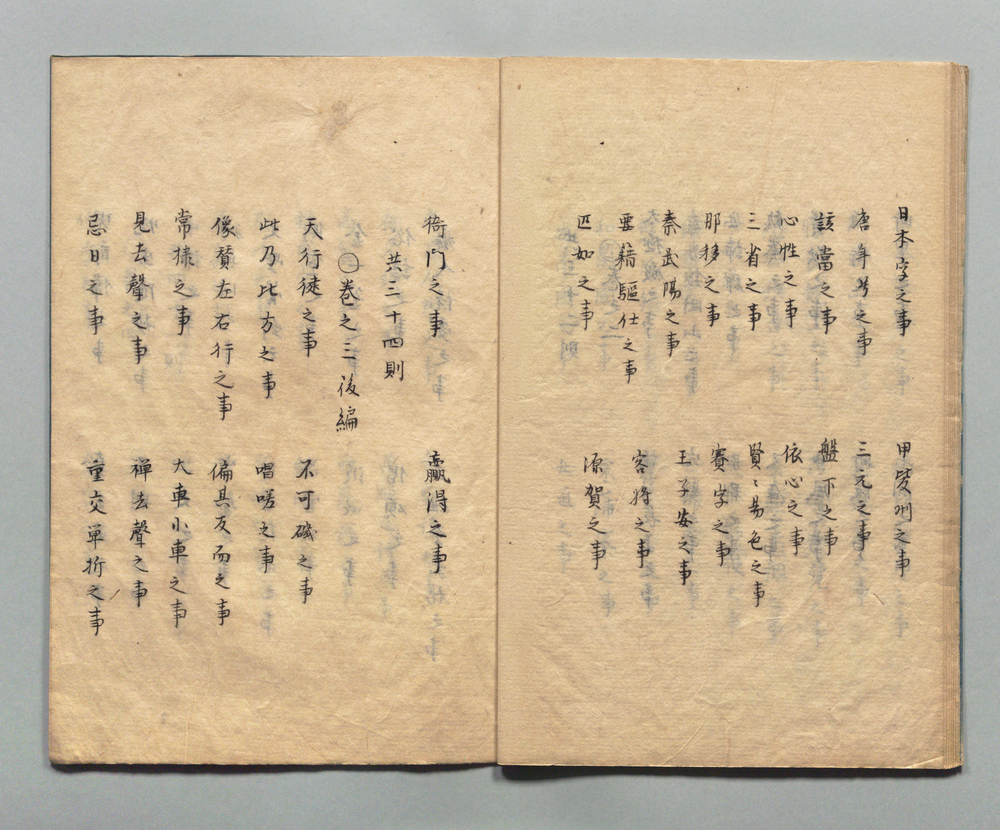 日本字之事 甲斐州之事
唐年号之事 三元之事
該當之事 盤下之事
心性之事 依心之事
三省之事 賢〻易色之事
那移之事 賽字之事
秦武陽之事 王子安之事
要藉驅仕之事 客将之事
匹如之事 源賀之事
衙門之事 贏得之事
共三十四則
○巻之三後編
天行徒之事 不可磯之事
此乃比方之事 唱喏之事
像賛左右行之事 偏其反而之事
常棣之事 大車小車之事
見去聲之事 禅去聲之事
忌日之事 重交單折之事